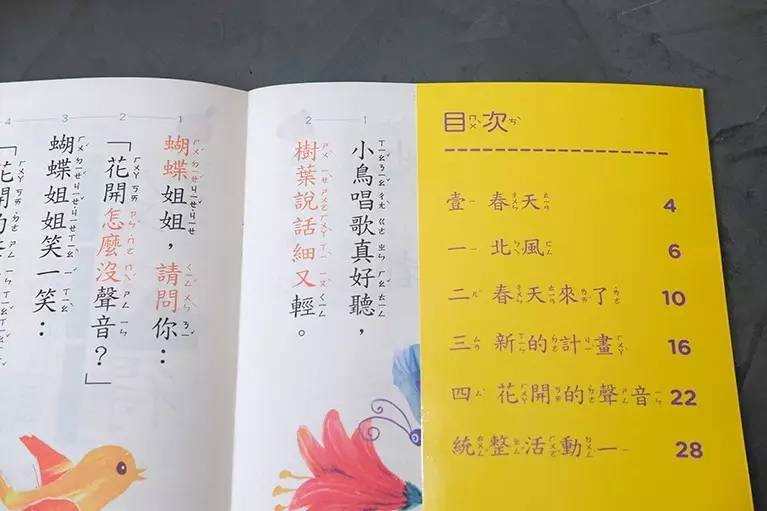 目次
壹 春天 4
一 北風 6
二 春天來了 10
三 新的計畫 16
四 花開的聲音 22
統整活動一 28
1
小鳥唱歌真好聽，
2
樹葉說話細又輕。
1
蝴蝶姐姐，請問你：
2
「花開怎麼沒聲音？」
3
蝴蝶姐姐笑一笑：
4
「花開的